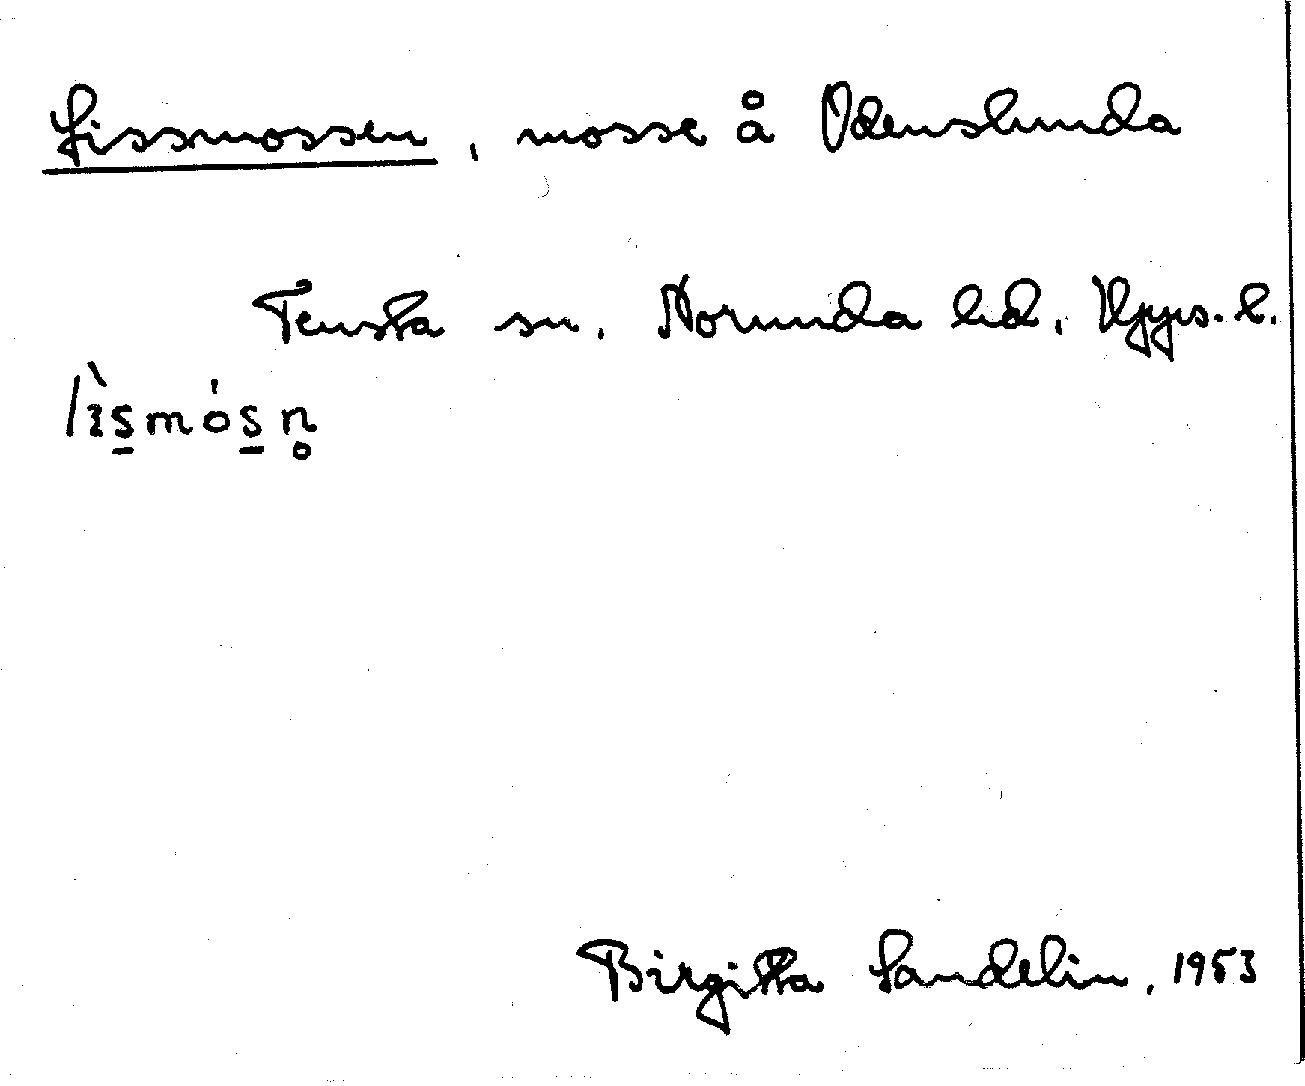 Lissmossen, mosse å Odenslunda
Tensta sn. Norunda hd. Upps. l.
lìs̠mós̠n̥
Birgitta Sandelin, 1953